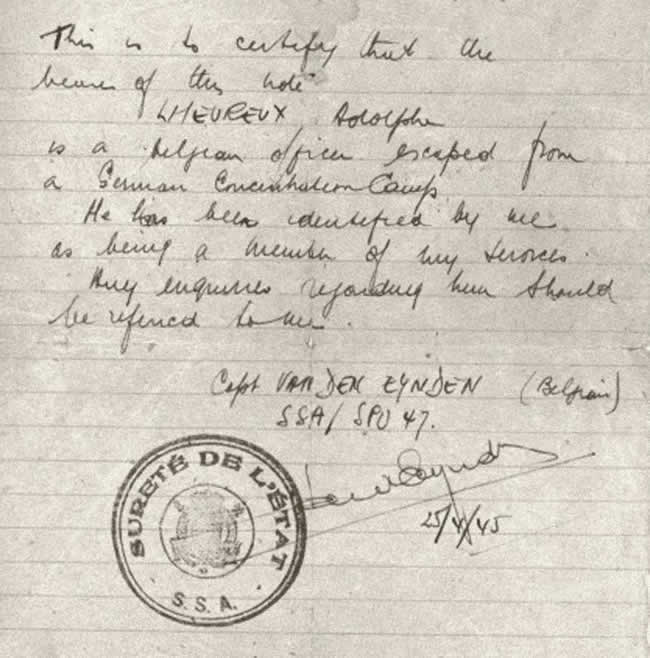 This is to certify that the
bearer of this note
LHEUREUX Adolphe
is a Belgian officer escaped from
a German Concentration Camp.
He has been identified by me
as being a member of my services.
Any enquiries regarding him should
be referred to me.
Capt VAN DEN EYNDEN (Belgian)
SSA/SPU 47.
25/4/45
SURETÉ DE L'ÉTAT
S.S.A.